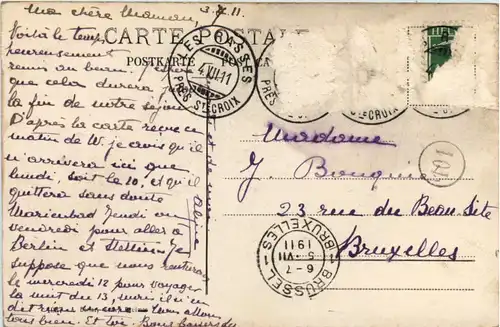 Ma chère Maman, 3.7.11.
CARTE POSTALE
POSTKARTE
Voilà le temps
heureusement
remis au beau.
que cela durera
la fin de notre séjour
D'après la carte reçue ce
matin de W. je vois qu'il
n'arrivera ici que
lundi, soit le 10, et qu'il
quittera sans doute
Marienbad jeudi ou
vendredi pour aller à
Berlin et Stettin. Je
suppose que nous
le mercredi 12 pour voyager
la nuit du 13, mais il n'en
dit rien
tous bien. Et toi. Bons baisers de
LES RASSES
4.VII.11
PRÈS STE CROIX
PRÈS
STE CROIX
Madame
J. Bouquié
23 rue du Beau-Site
Bruxelles
101
BRUXELLES
6-7
5-VII
1911
BRÜSSEL